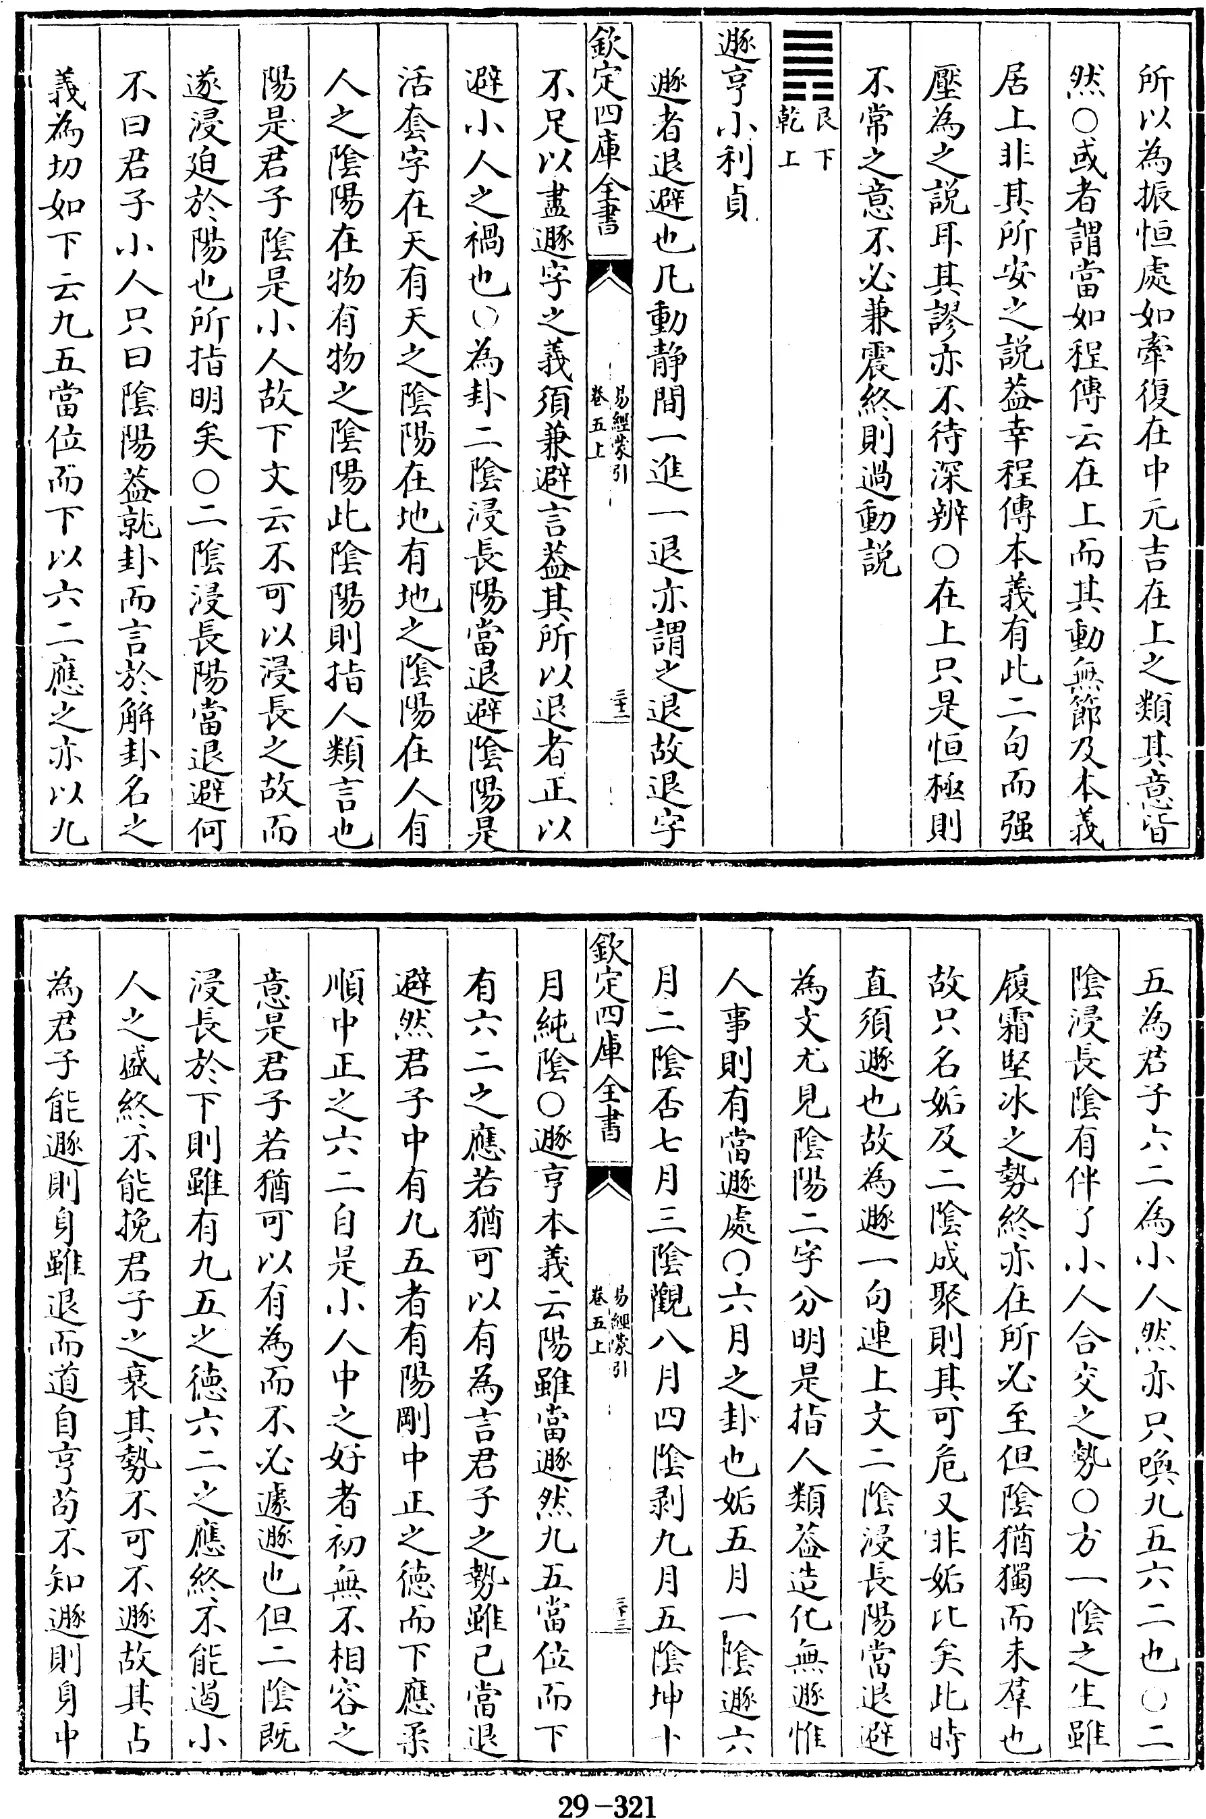 所以為振恒處如牽復在中元吉在上之類其意皆
然○或者謂當如程傳云在上而其動無節及本義
居上非其所安之説葢幸程傳本義有此二句而强
壓為之説耳其謬亦不待深辨○在上只是恒極則
不常之意不必兼震終則過動説
艮下
乾上
遯亨小利貞
遯者退避也凡動静間一進一退亦謂之退故退字
欽定四庫全書
易經蒙引
卷五上
三十二
不足以盡遯字之義須兼避言葢其所以退者正以
避小人之禍也○為卦二陰浸長陽當退避陰陽是
活套字在天有天之陰陽在地有地之陰陽在人有
人之陰陽在物有物之陰陽此陰陽則指人類言也
陽是君子陰是小人故下文云不可以浸長之故而
遂浸迫於陽也所指明矣○二陰浸長陽當退避何
不曰君子小人只曰陰陽葢就卦而言於解卦名之
義為切如下云九五當位而下以六二應之亦以九
五為君子六二為小人然亦只喚九五六二也○二
陰浸長陰有伴了小人合交之勢○方一陰之生雖
履霜堅冰之勢終亦在所必至但陰猶獨而未羣也
故只名姤及二陰成聚則其可危又非姤比矣此時
直須遯也故為遯一句連上文二陰浸長陽當退避
為文尤見陰陽二字分明是指人類葢造化無遯惟
人事則有當遯處○六月之卦也姤五月一陰遯六
月二陰否七月三陰觀八月四陰剥九月五陰坤十
欽定四庫全書
易經蒙引
卷五上
三十三
月純陰○遯亨本義云陽雖當遯然九五當位而下
有六二之應若猶可以有為言君子之勢雖已當退
避然君子中有九五者有陽剛中正之德而下應柔
順中正之六二自是小人中之好者初無不相容之
意是君子若猶可以有為而不必遽遯也但二陰既
浸長於下則雖有九五之德六二之應終不能遏小
人之盛終不能挽君子之衰其勢不可不遯故其占
為君子能遯則身雖退而道自亨苟不知遯則身中
29-321